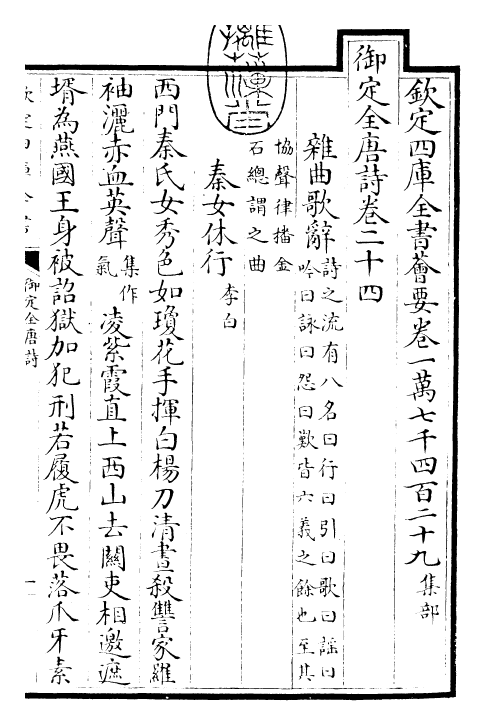 欽定四庫全書薈要卷一萬七千四百二十九 集部
御定全唐詩卷二十四
雜曲歌辭 詩之流有八名曰行曰引曰歌曰謡曰
吟曰詠曰怨曰歎皆六義之餘也至其
協聲律播金
石總謂之曲
秦女休行 李白
西門秦氏女秀色如瓊花手揮白楊刀清晝殺讐家羅
袖灑赤血英聲 集作氣 凌紫霞直上西山去關吏相邀遮
壻為燕國王身被詔獄加犯刑若履虎不畏落爪牙素
御定全唐詩
一